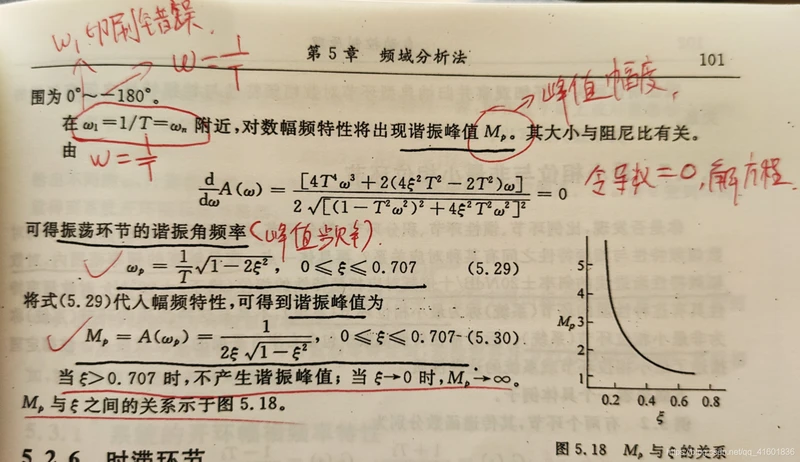 ω₁印刷错误
ω=1/T
第5章 频域分析法 101
围为0°~-180°。
峰值幅度,
在 ω₁=1/T=ωₙ 附近,对数幅频特性将出现谐振峰值 Mₚ。其大小与阻尼比有关。
由
ω=1/T
d/dω A(ω) = [4T⁴ω³+2(4ξ²T²-2T²)ω] / 2√[(1-T²ω²)²+4ξ²T²ω²]³ = 0
令导数=0,解方程
可得振荡环节的谐振角频率
(峰值频率)
ωₚ = 1/T √1-2ξ², 0≤ξ≤0.707 (5.29)
将式(5.29)代入幅频特性,可得到谐振峰值为
Mₚ = A(ωₚ) = 1 / 2ξ√1-ξ², 0≤ξ≤0.707 (5.30)
当ξ>0.707时,不产生谐振峰值;当ξ→0时,Mₚ→∞。
Mₚ与ξ之间的关系示于图5.18。
5
4
Mₚ3
2
1
0.2 0.4 0.6 0.8
ξ
图5.18 Mₚ与ξ的关系
5.2.6 时滞环节